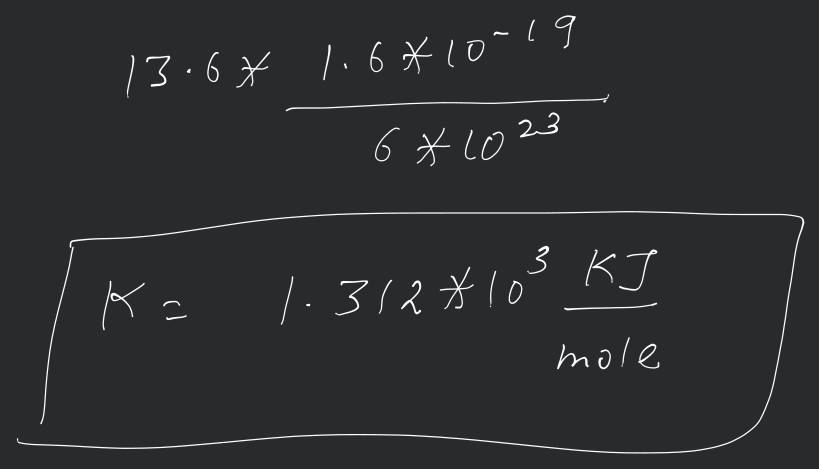 13.6 * 1.6 * 10^-19
6 * 10^23
K = 1.312 * 10^3 KJ
mole